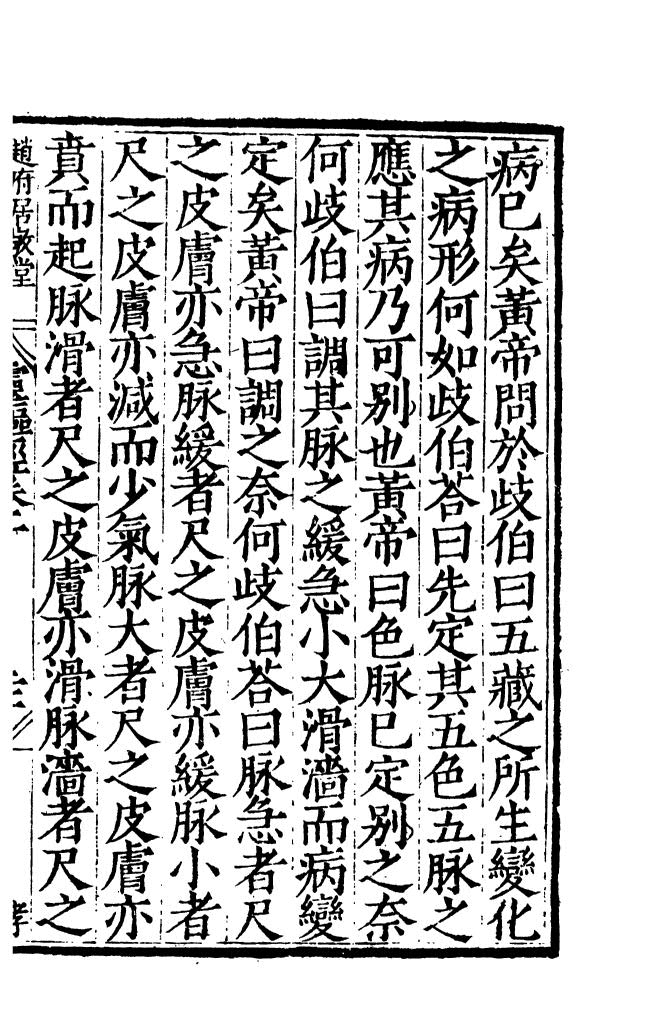 病已矣黃帝問於歧伯曰五藏之所生變化
之病形何如歧伯荅曰先定其五色五脉之
應其病乃可别也黃帝曰色脉已定别之奈
何歧伯曰調其脉之緩急小大滑濇而病變
定矣黃帝曰調之奈何歧伯荅曰脉急者尺
之皮膚亦急脉緩者尺之皮膚亦緩脉小者
尺之皮膚亦減而少氣脉大者尺之皮膚亦
賁而起脉滑者尺之皮膚亦滑脉濇者尺之
趙府居敬堂
靈樞經卷